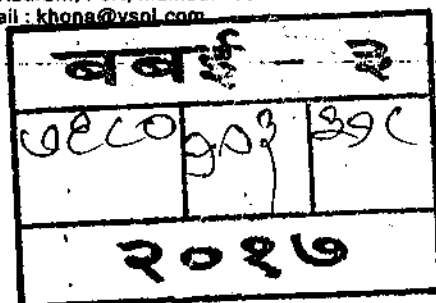 ail : khona@vsnl.com
बबई - ३
७९८० १०३ ३१८
२०१७